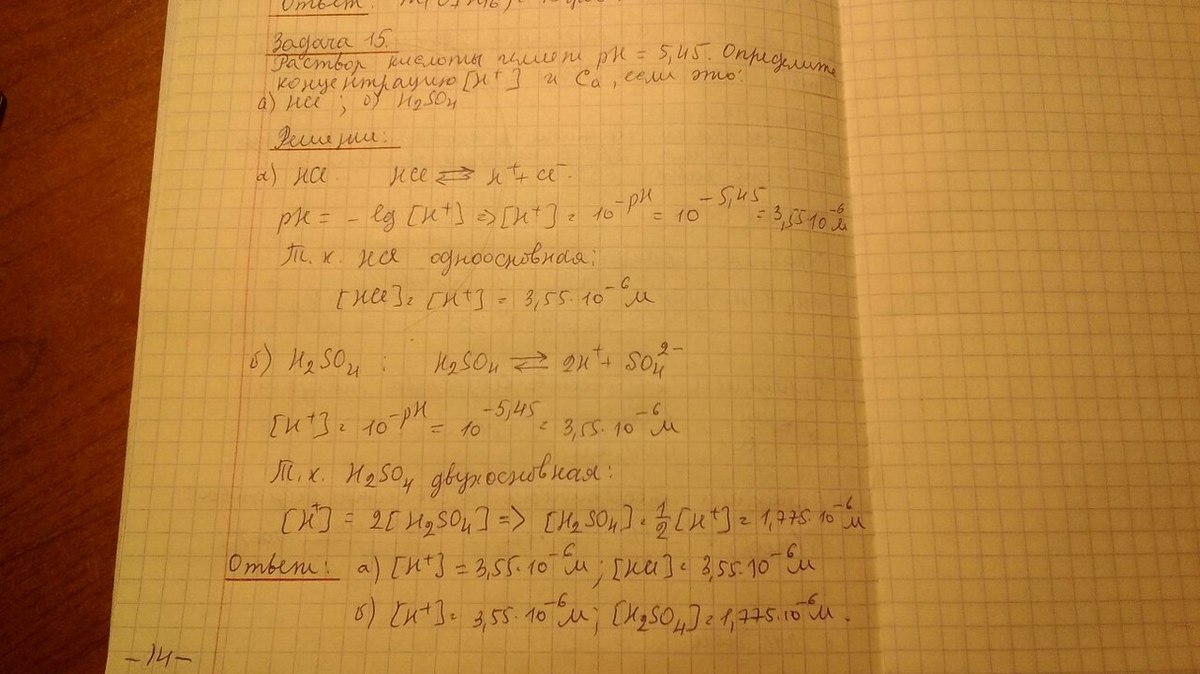 Ответ:
Задача 15.
Раствор кислоты имеет pH = 5,45. Определите
концентрацию [H⁺] и Ca, если это:
а) HCl ; б) H₂SO₄
Решение:
а) HCl. HCl ⇄ H⁺ + Cl⁻.
pH = - lg [H⁺] => [H⁺] = 10^-pH = 10^-5,45 = 3,55·10⁻⁶ М
Т. к. HCl одноосновная:
[HCl] = [H⁺] = 3,55·10⁻⁶ М
б) H₂SO₄ : H₂SO₄ ⇄ 2H⁺ + SO₄²⁻
[H⁺] = 10^-pH = 10^-5,45 = 3,55·10⁻⁶ М
Т. к. H₂SO₄ двухосновная:
[H⁺] = 2[H₂SO₄] => [H₂SO₄] = 1/2 [H⁺] = 1,775·10⁻⁶ М
Ответ: а) [H⁺] = 3,55·10⁻⁶ М ; [HCl] = 3,55·10⁻⁶ М
б) [H⁺] = 3,55·10⁻⁶ М ; [H₂SO₄] = 1,775·10⁻⁶ М.
-14-